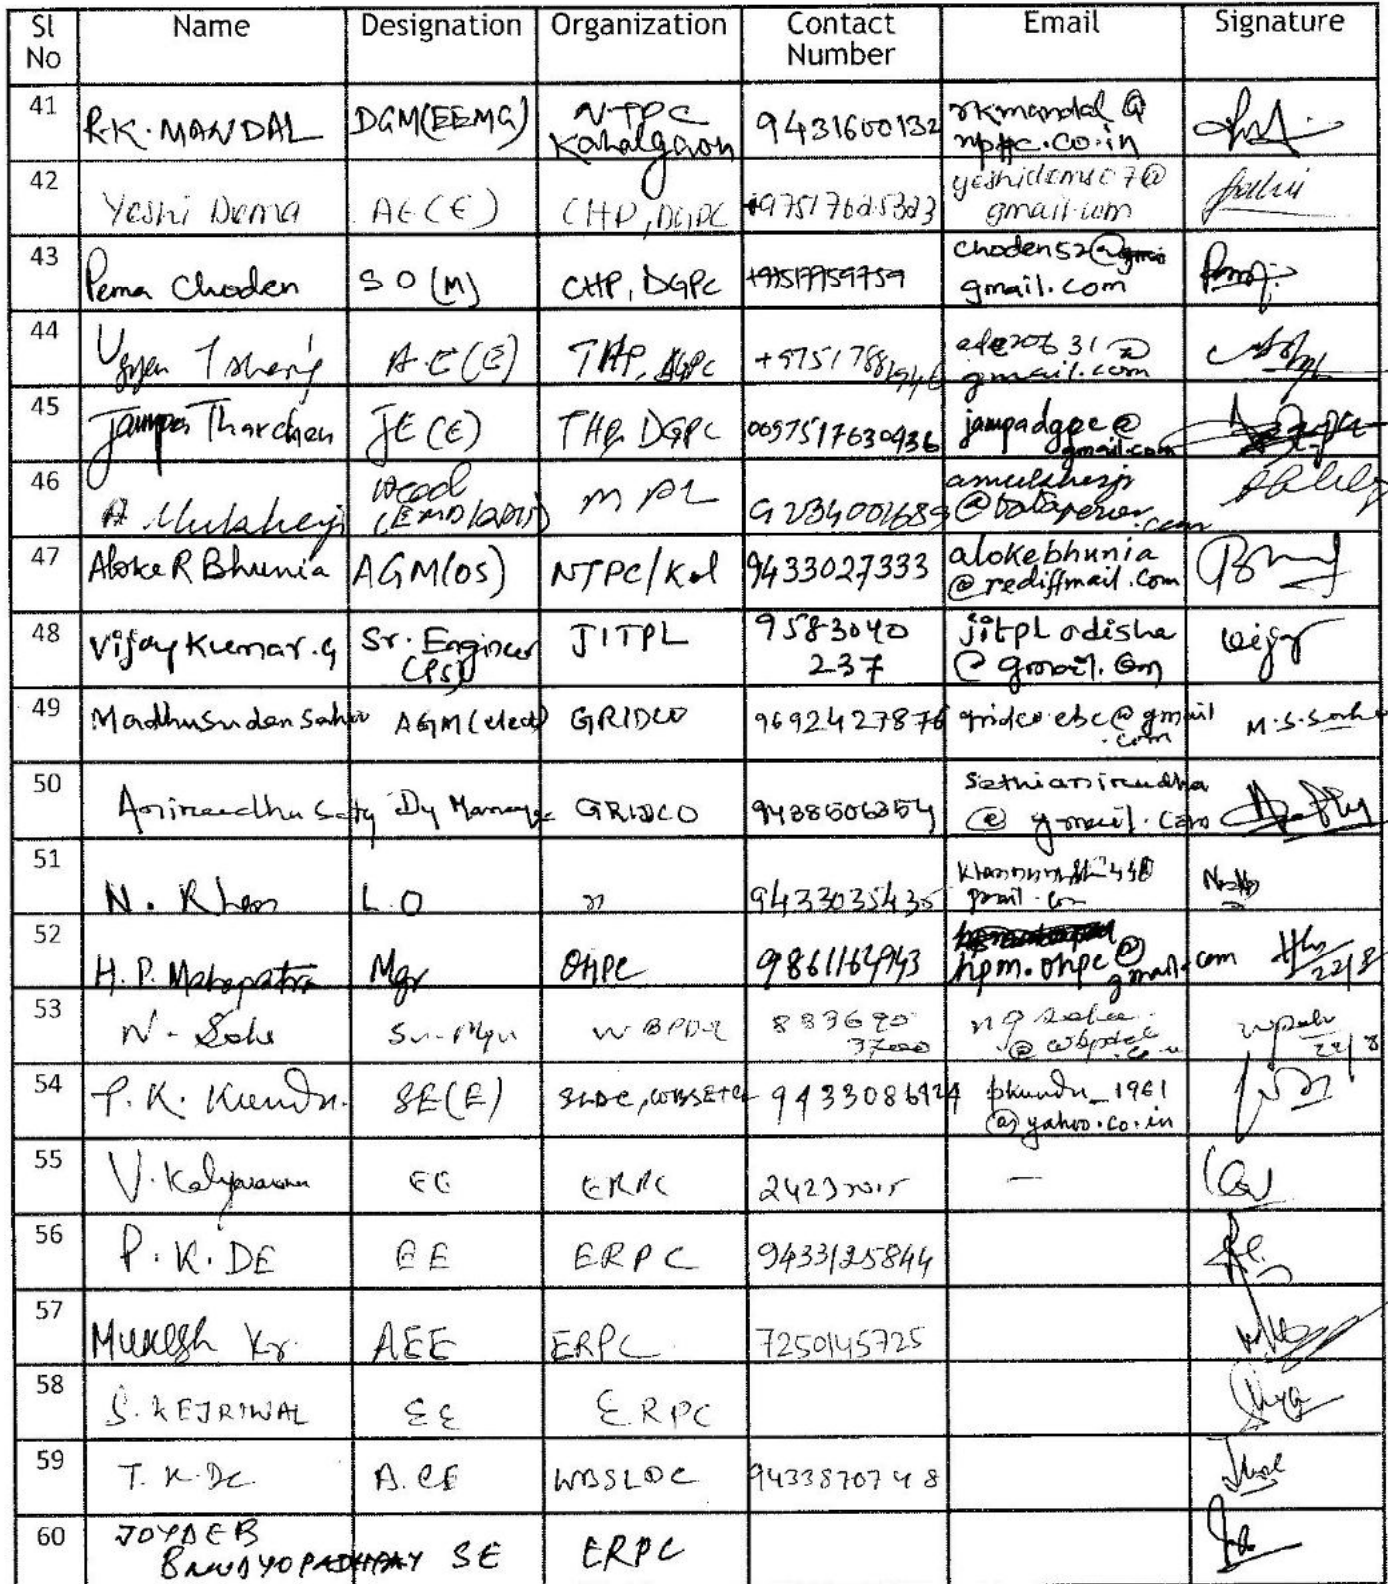 Sl No Name Designation Organization Contact Number Email Signature
41 R.K. MANDAL DGM(EEMG) NTPC Kahalgaon 9431600132 rkmandal @ .co.in
42 Yeshi Dema AE(E) CHP, DGPC gmail.com
43 Pema Choden SO (M) CHP, DGPC +97517959759 choden52@ gmail.com
44 Ugyen Tshering A-E(E) THP, DGPC gmail.com
45 Jampa Tharchen JE (E) THP, DGPC 0097517630936 jampadgpc@ gmail.com
46 A. Mukherji Head MPL amukherji @tatapower.com
47 Aloke R Bhunia AGM(OS) NTPC/Kol 9433027333 alokebhunia @rediffmail.com
48 Vijay Kumar.G Sr. Engineer (PS) JITPL 9583040 237 jitpl odisha @ gmail.com vijay
49 Madhusudan Sahoo AGM(elect) GRIDCO 9692427876 gridco.ebc@gmail .com M.S.Sahoo
50 Dy Manager GRIDCO sethianirudha @ gmail.com
51 N. Khan L.O " 9433035435 gmail.com
52 H.P. Mahapatra Mgr OHPC hpm.ohpc@ gmail.com 22/8
53 N. Saha Sr. Mgr 22/8
54 P.K. Kundu SE(E) SLDC, WBSETCL pkundu_1961 @yahoo.co.in
55 V. Kalyanaraman EE ERPC —
56 P.K. DE EE ERPC 9433125844
57 Mukesh Kr. AEE ERPC 7250145725
58 S. KEJRIWAL EE ERPC
59 T.K. De A.CE WBSLDC 9433870748
60 JOYDEB BANDYOPADHYAY SE ERPC